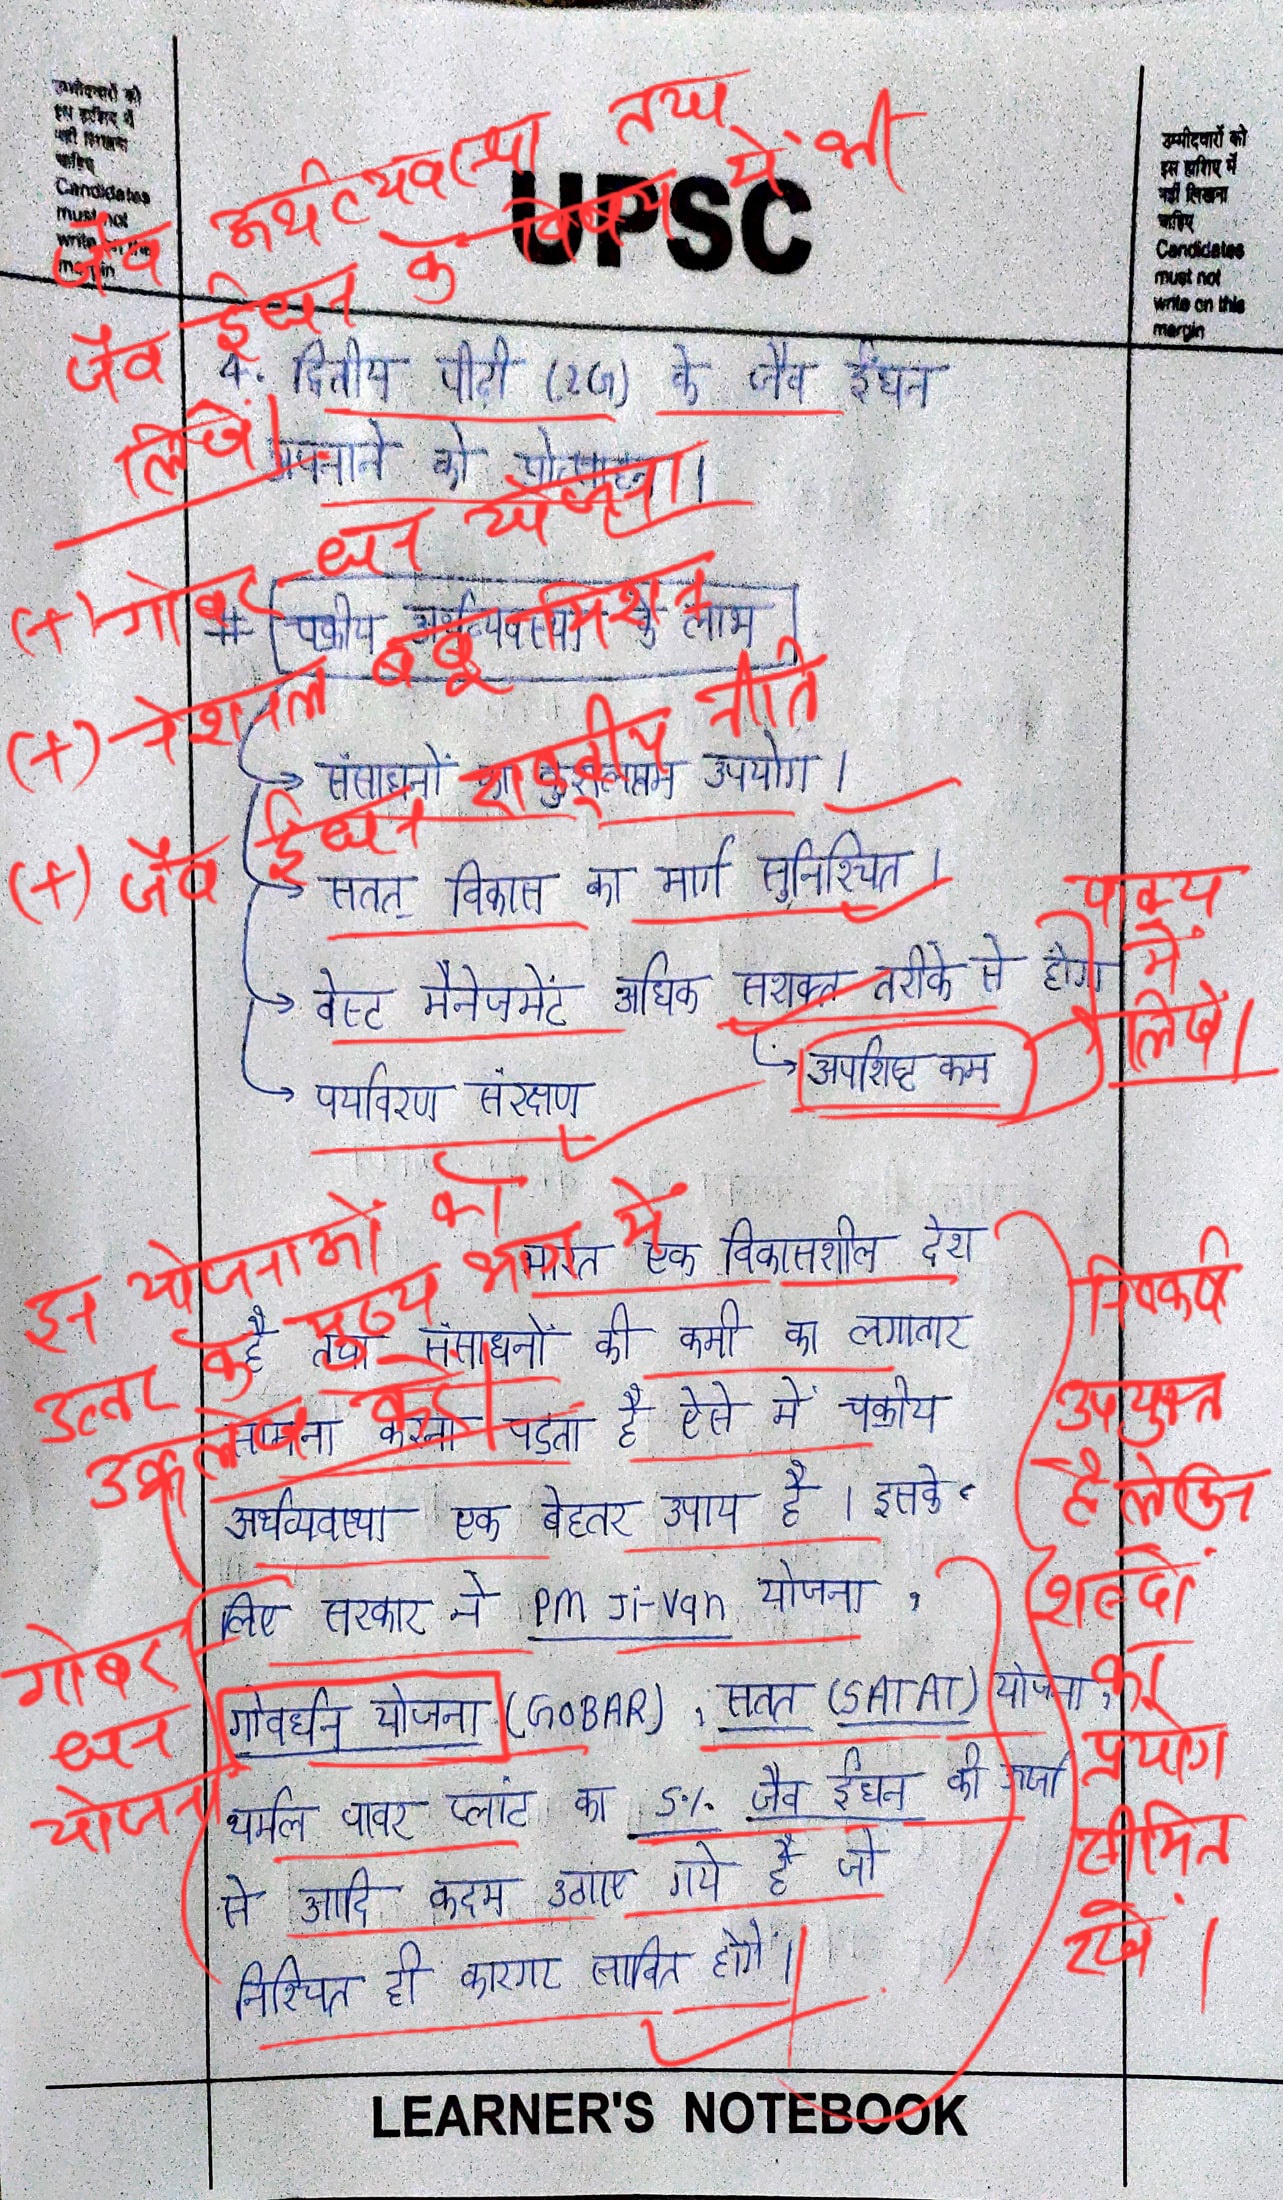 उम्मीदवारों को
इस हाशिए में
नहीं लिखना
चाहिए
Candidates
must not
write on this
margin
उम्मीदवारों को
इस हाशिए में
नहीं लिखना
चाहिए
Candidates
must not
write on this
margin
UPSC
जैव अर्थव्यवस्था तथा
जैव ईंधन के विषय में भी
लिखें।
4. द्वितीय पीढ़ी (2G) के जैव ईंधन
अपनाने को प्रोत्साहन।
(+) गोबर-धन योजना
(+) नेशनल बम्बू मिशन
(+) जैव ईंधन राष्ट्रीय नीति
# चक्रीय अर्थव्यवस्था के लाभ
→ संसाधनों का कुशलतम उपयोग।
→ सतत् विकास का मार्ग सुनिश्चित।
→ वेस्ट मैनेजमेंट अधिक सशक्त तरीके से होगा
→ अपशिष्ट कम
→ पर्यावरण संरक्षण
वाक्य
में
लिखें।
इन योजनाओं को
उत्तर के मुख्य भाग में
उल्लेख करें।
भारत एक विकासशील देश
है तथा संसाधनों की कमी का लगातार
सामना करना पड़ता है ऐसे में चक्रीय
अर्थव्यवस्था एक बेहतर उपाय है। इसके
लिए सरकार ने PM Ji-Van योजना,
गोवर्धन योजना (GOBAR), सतत (SATAT) योजना,
थर्मल पावर प्लांट का 5% जैव ईंधन की ऊर्जा
से आदि कदम उठाए गये है जो
निश्चित ही कारगर साबित होगें।
गोबर
धन
योजना
निष्कर्ष
उपयुक्त
है लेकिन
शब्दों
का
प्रयोग
सीमित
रखें।
LEARNER'S NOTEBOOK